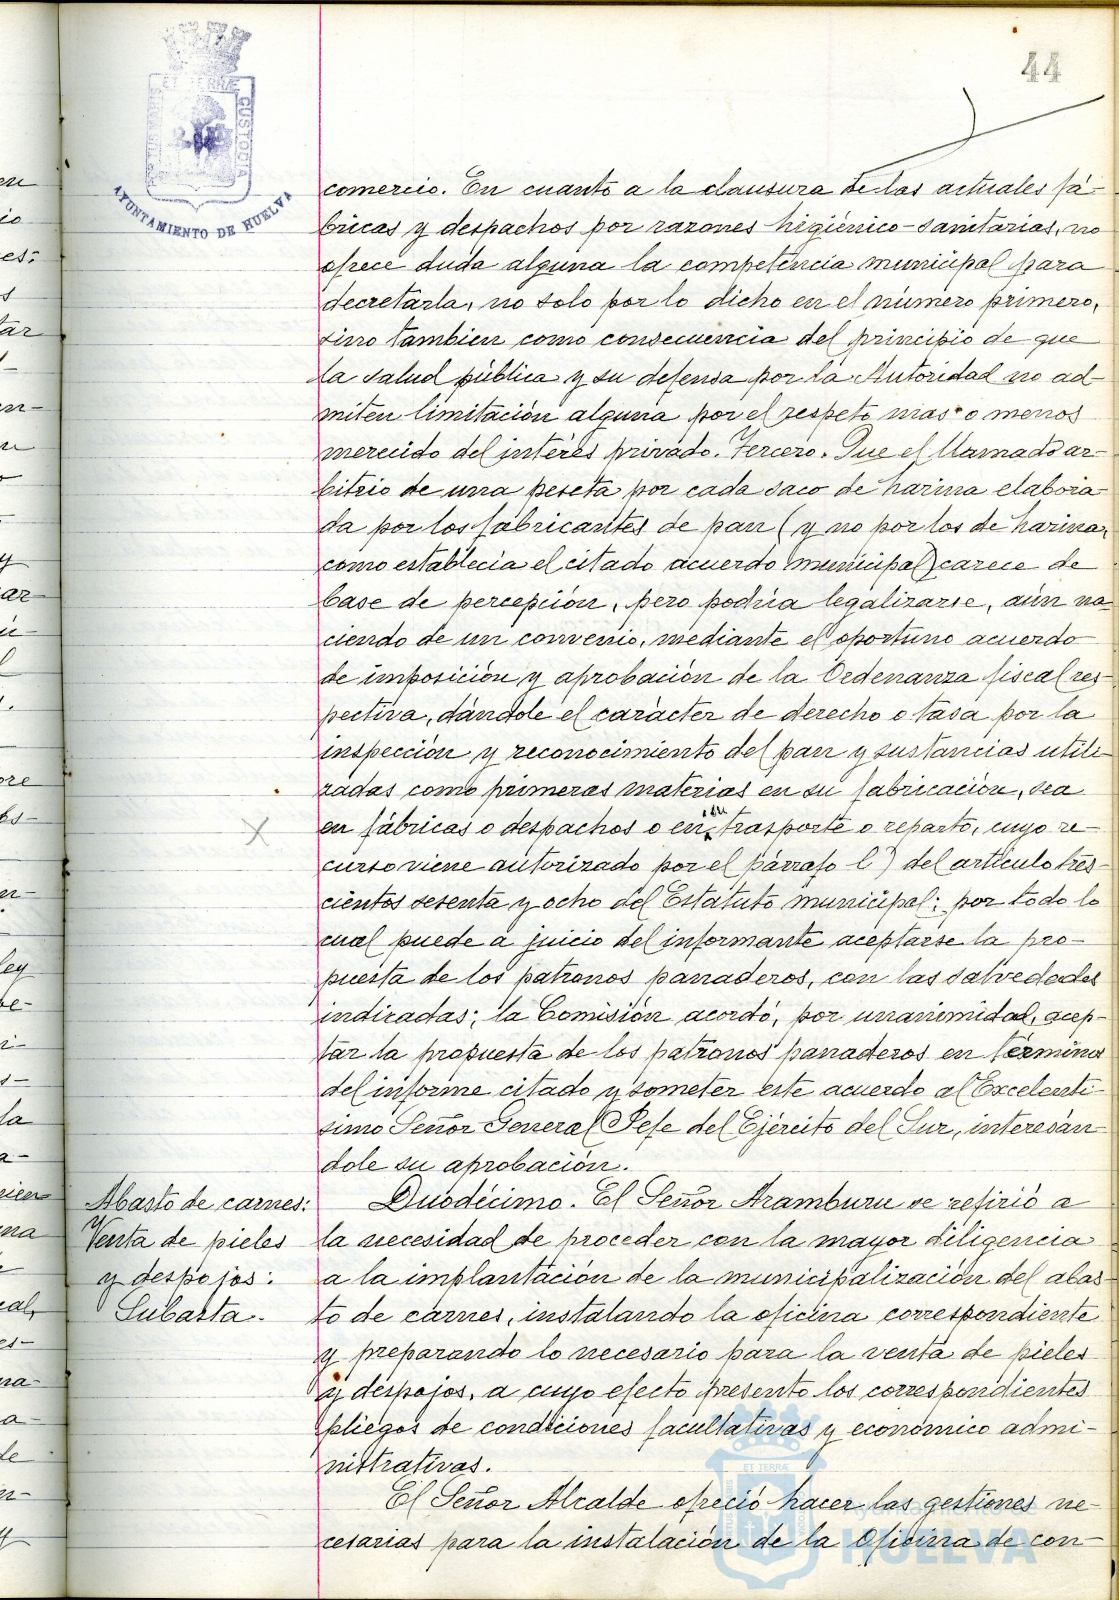 44
AYUNTAMIENTO DE HUELVA
comercio. En cuanto a la clausura de las actuales fá-
bricas y despachos por razones higiénico-sanitarias, no
ofrece duda alguna la competencia municipal para
decretarla, no solo por lo dicho en el número primero,
sino tambien como consecuencia del principio de que
la salud pública y su defensa por la Autoridad no ad-
miten limitación alguna por el respeto mas o menos
merecido del interés privado. Tercero. Que el llamado ar-
bitrio de una peseta por cada saco de harina elabora-
da por los fabricantes de pan (y no por los de harina,
como establecia el citado acuerdo municipal) carece de
base de percepción, pero podria legalizarse, aún na-
ciendo de un convenio, mediante el oportuno acuerdo
de imposición y aprobación de la Ordenanza fiscal res-
pectiva, dándole el carácter de derecho o tasa por la
inspección y reconocimiento del pan y sustancias utili-
zadas como primeras materias en su fabricación, sea
en fábricas o despachos o en su trasporte o reparto, cuyo re
curso viene autorizado por el párrafo l) del artículo tres-
cientos sesenta y ocho del Estatuto municipal; por todo lo
cual puede a juicio del informante aceptarse la pro-
puesta de los patronos panaderos, con las salvedades
indicadas; la Comisión acordó, por unanimidad, acep-
tar la propuesta de los patronos panaderos en términos
del informe citado y someter este acuerdo al Excelentí-
simo Señor General Jefe del Ejército del Sur, interesán-
dole su aprobación.
Abasto de carnes:
Venta de pieles
y despojos:
Subasta.
Duodécimo. El Señor Aramburu se refirió a
la necesidad de proceder con la mayor diligencia
a la implantación de la municipalización del abas-
to de carnes, instalando la oficina correspondiente
y preparando lo necesario para la venta de pieles
y despojos, a cuyo efecto presentó los correspondientes
pliegos de condiciones facultativas y económico admi-
nistrativas.
El Señor Alcalde ofreció hacer las gestiones ne-
cesarias para la instalación de la Oficina de con-
Ayuntamiento de
HUELVA